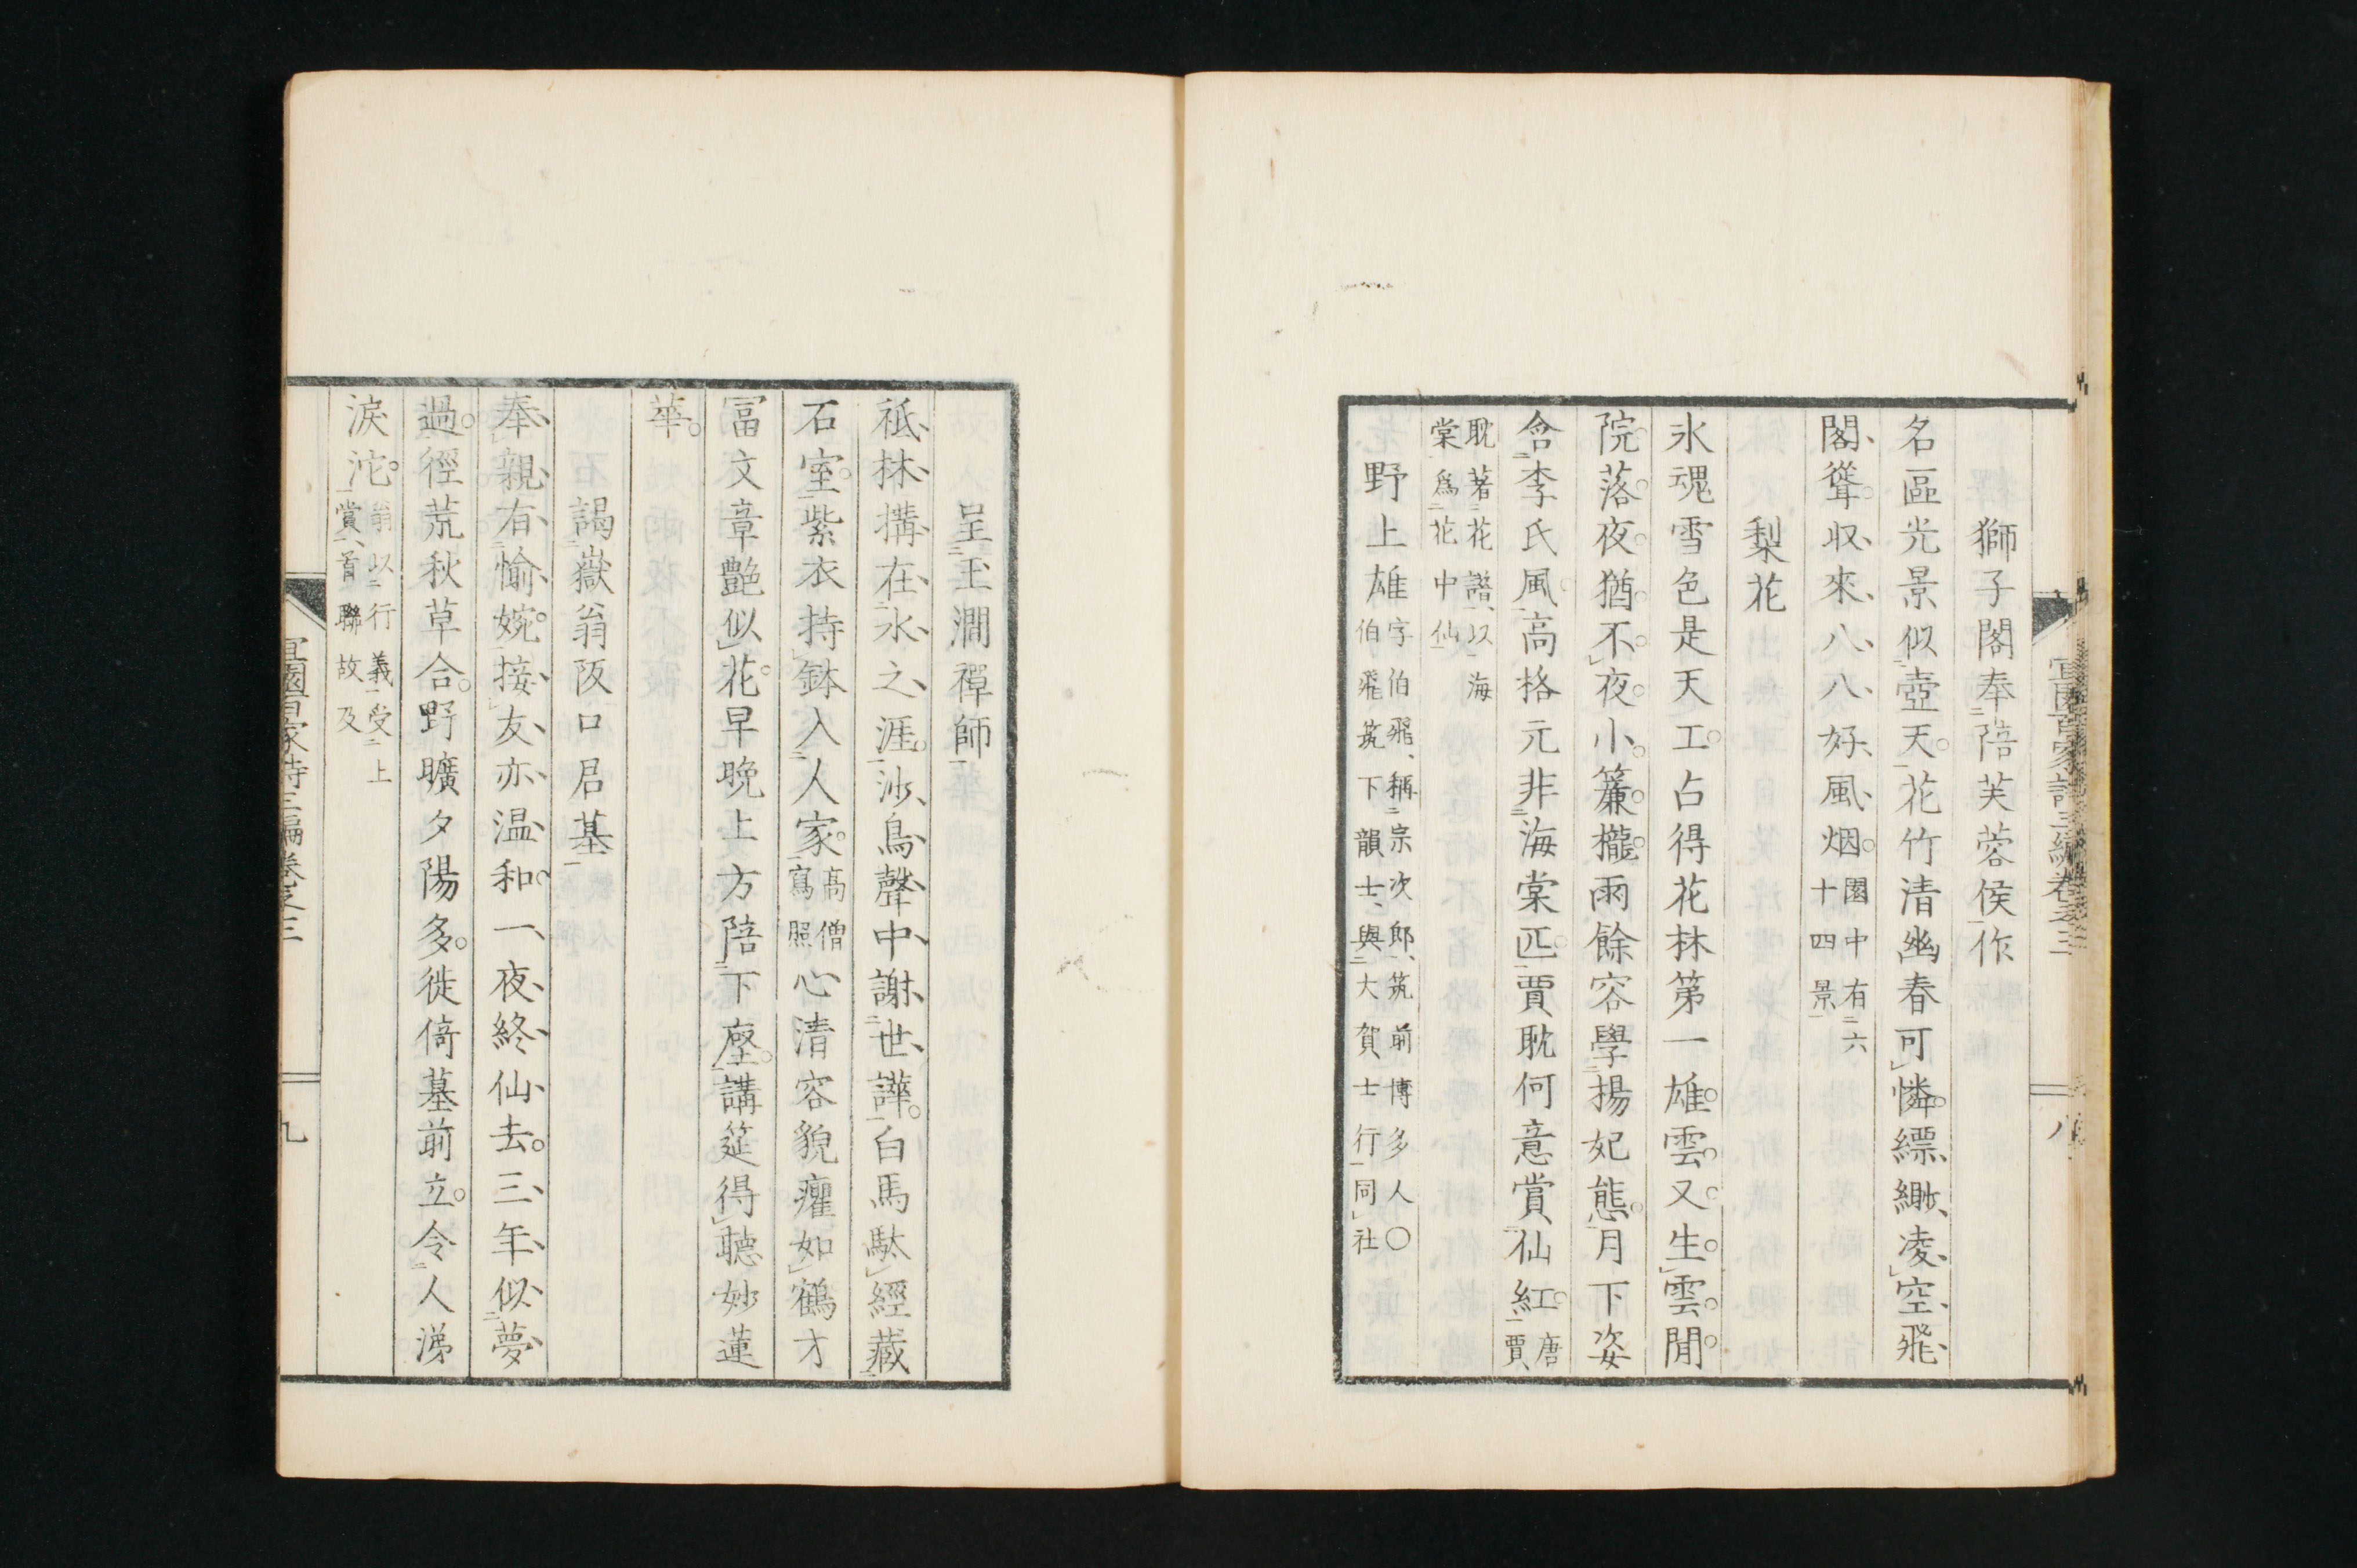 獅子閣奉陪芙蓉侯作
名區光景似壺天花竹清幽春可憐縹緲凌空飛
閣聳収來八八好風烟園中有六
十四景
梨花
氷魂雪色是天工占得花林第一雄雲又生雲閒
院落夜猶不夜小簾櫳雨餘容學揚妃態月下姿
含李氏風高格元非海棠匹賈耽何意賞仙紅唐
賈
耽著花譜以海
棠爲花中仙
野上雄字伯飛稱宗次郎筑前博多人〇
伯飛筑下韻士與大賀士行同社
宜園百家詩三編卷之三
八
呈玉澗禪師
祇林搆在氷之涯沙鳥聲中謝世譁白馬駄經藏
石室紫衣持鉢入人家高僧
寫照心清容貌癯如鶴才
冨文章艶似花早晩上方陪下塵講筵得聽妙蓮
華
謁嶽翁阪口君墓
奉親有愉婉接友亦温和一夜終仙去三年似夢
過徑荒秋草合野曠夕陽多徙倚墓前立令人涕
淚沱翁以行義受上
賞首聯故及
宜園百家詩三編卷之三
九